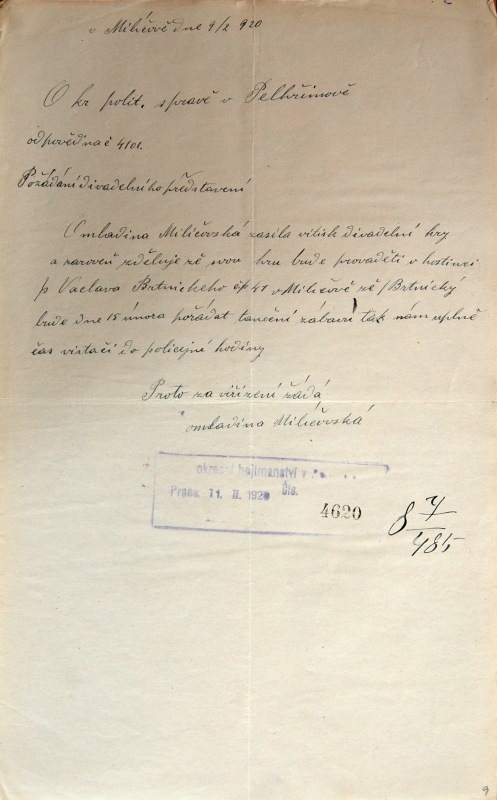 v Milíčově dne 9/2 920
O kr polit. správě v Pelhřimově
odpověď na č 4101.
Požádání divadelního představení
Omladina Milíčovská zasíla vitisk divadelní hry
a zaroveň zděluje zě svou hru bude prováděti v hostinci
p Vaclava Brtnickeho čp 41 v Milíčově zě / Brtnický
bude dne 15 února pořádat taneční zábavu tak nám uplně
čas vistačí do policejní hodiny
Proto za viřízení žádá
omladina Milíčovská
okresní hejtmanství v
Praes. 11. II. 1920 Čís.
4620
8 4/485
9